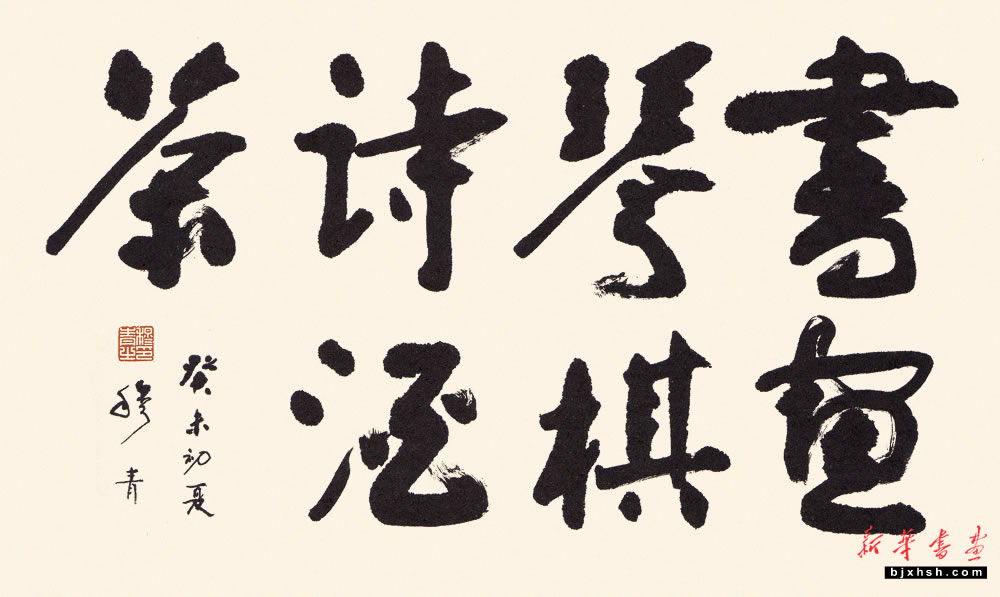 書畫
琴棋
诗酒
茶
癸未初夏
穆青
新华書画
bjxhsh.com